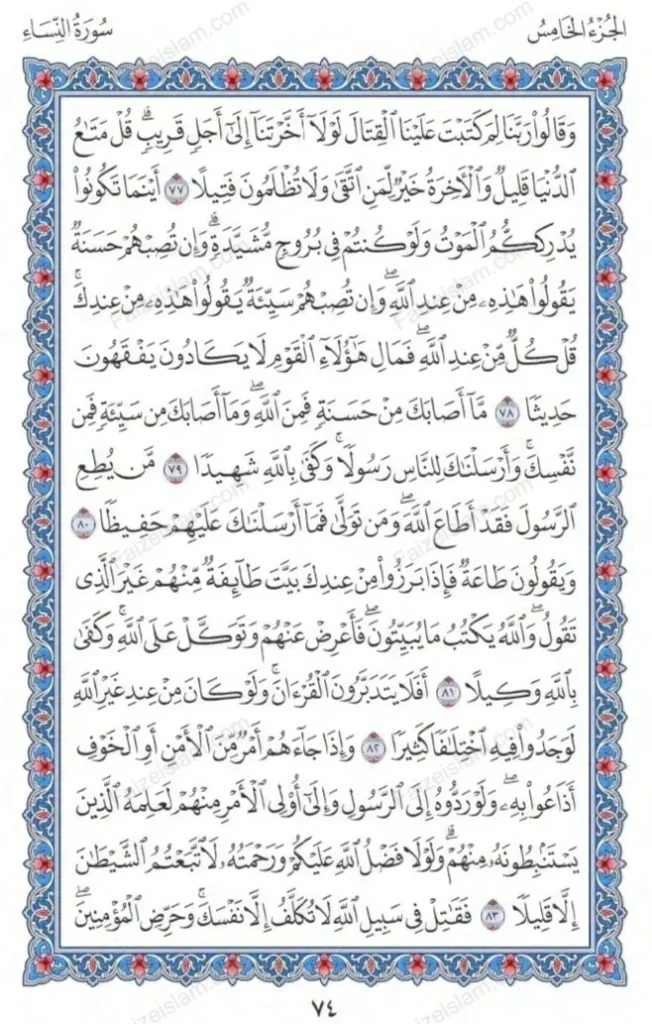 الجُزْءُ الخَامِسُ
سُورَةُ النِّسَاءِ
وَقَالُوا۟ رَبَّنَا لِمَ كَتَبْتَ عَلَيْنَا ٱلْقِتَالَ لَوْلَآ أَخَّرْتَنَآ إِلَىٰٓ أَجَلٍ قَرِيبٍ ۗ قُلْ مَتَـٰعُ
ٱلدُّنْيَا قَلِيلٌ وَٱلْـَٔاخِرَةُ خَيْرٌ لِّمَنِ ٱتَّقَىٰ وَلَا تُظْلَمُونَ فَتِيلًا ٧٧ أَيْنَمَا تَكُونُوا۟
يُدْرِككُّمُ ٱلْمَوْتُ وَلَوْ كُنتُمْ فِى بُرُوجٍ مُّشَيَّدَةٍ ۗ وَإِن تُصِبْهُمْ حَسَنَةٌ
يَقُولُوا۟ هَـٰذِهِۦ مِنْ عِندِ ٱللَّهِ ۖ وَإِن تُصِبْهُمْ سَيِّئَةٌ يَقُولُوا۟ هَـٰذِهِۦ مِنْ عِندِكَ ۚ
قُلْ كُلٌّ مِّنْ عِندِ ٱللَّهِ ۖ فَمَالِ هَـٰٓؤُلَآءِ ٱلْقَوْمِ لَا يَكَادُونَ يَفْقَهُونَ
حَدِيثًا ٧٨ مَّآ أَصَابَكَ مِنْ حَسَنَةٍ فَمِنَ ٱللَّهِ ۖ وَمَآ أَصَابَكَ مِن سَيِّئَةٍ فَمِن
نَّفْسِكَ ۚ وَأَرْسَلْنَـٰكَ لِلنَّاسِ رَسُولًا ۚ وَكَفَىٰ بِٱللَّهِ شَهِيدًا ٧٩ مَّن يُطِعِ
ٱلرَّسُولَ فَقَدْ أَطَاعَ ٱللَّهَ ۖ وَمَن تَوَلَّىٰ فَمَآ أَرْسَلْنَـٰكَ عَلَيْهِمْ حَفِيظًا ٨٠
وَيَقُولُونَ طَاعَةٌ فَإِذَا بَرَزُوا۟ مِنْ عِندِكَ بَيَّتَ طَآئِفَةٌ مِّنْهُمْ غَيْرَ ٱلَّذِى
تَقُولُ ۖ وَٱللَّهُ يَكْتُبُ مَا يُبَيِّتُونَ ۖ فَأَعْرِضْ عَنْهُمْ وَتَوَكَّلْ عَلَى ٱللَّهِ ۚ وَكَفَىٰ
بِٱللَّهِ وَكِيلًا ٨١ أَفَلَا يَتَدَبَّرُونَ ٱلْقُرْءَانَ ۚ وَلَوْ كَانَ مِنْ عِندِ غَيْرِ ٱللَّهِ
لَوَجَدُوا۟ فِيهِ ٱخْتِلَـٰفًا كَثِيرًا ٨٢ وَإِذَا جَآءَهُمْ أَمْرٌ مِّنَ ٱلْأَمْنِ أَوِ ٱلْخَوْفِ
أَذَاعُوا۟ بِهِۦ ۖ وَلَوْ رَدُّوهُ إِلَى ٱلرَّسُولِ وَإِلَىٰٓ أُو۟لِى ٱلْأَمْرِ مِنْهُمْ لَعَلِمَهُ ٱلَّذِينَ
يَسْتَنۢبِطُونَهُۥ مِنْهُمْ ۗ وَلَوْلَا فَضْلُ ٱللَّهِ عَلَيْكُمْ وَرَحْمَتُهُۥ لَٱتَّبَعْتُمُ ٱلشَّيْطَـٰنَ
إِلَّا قَلِيلًا ٨٣ فَقَـٰتِلْ فِى سَبِيلِ ٱللَّهِ لَا تُكَلَّفُ إِلَّا نَفْسَكَ ۚ وَحَرِّضِ ٱلْمُؤْمِنِينَ ۖ
٧٤
Faizeislam.com